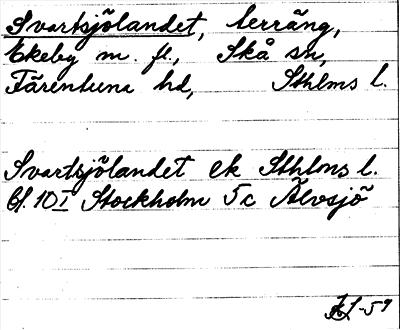 Svartsjölandet, terräng,
Ekeby m. fl., Skå sn,
Färentuna hd, Sthlms l.
Svartsjölandet ek Sthlms l.
Bl. 10 I Stockholm 5c Älvsjö
-59